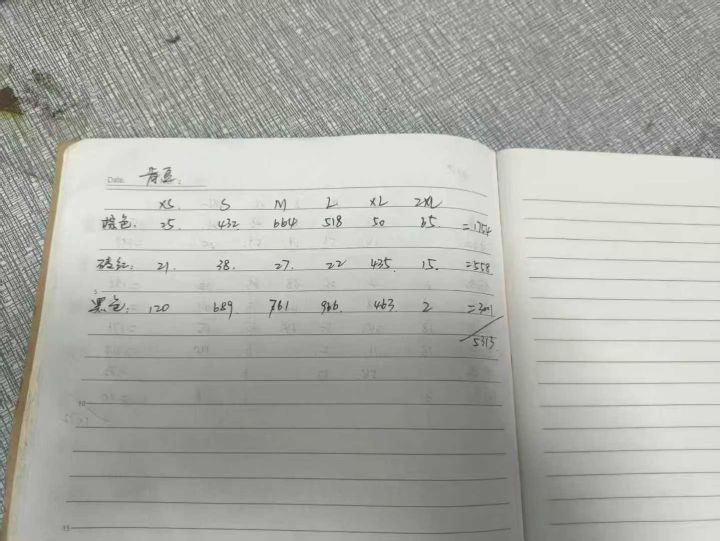 Date.
XS. S M L XL 2XL
棕色. 25. 432 664 518 50 65. =1754
砖红: 21. 38. 27. 22 435. 15. =558
黑色: 120 689. 761 966. 463. 2 =3001
5313.
10
15